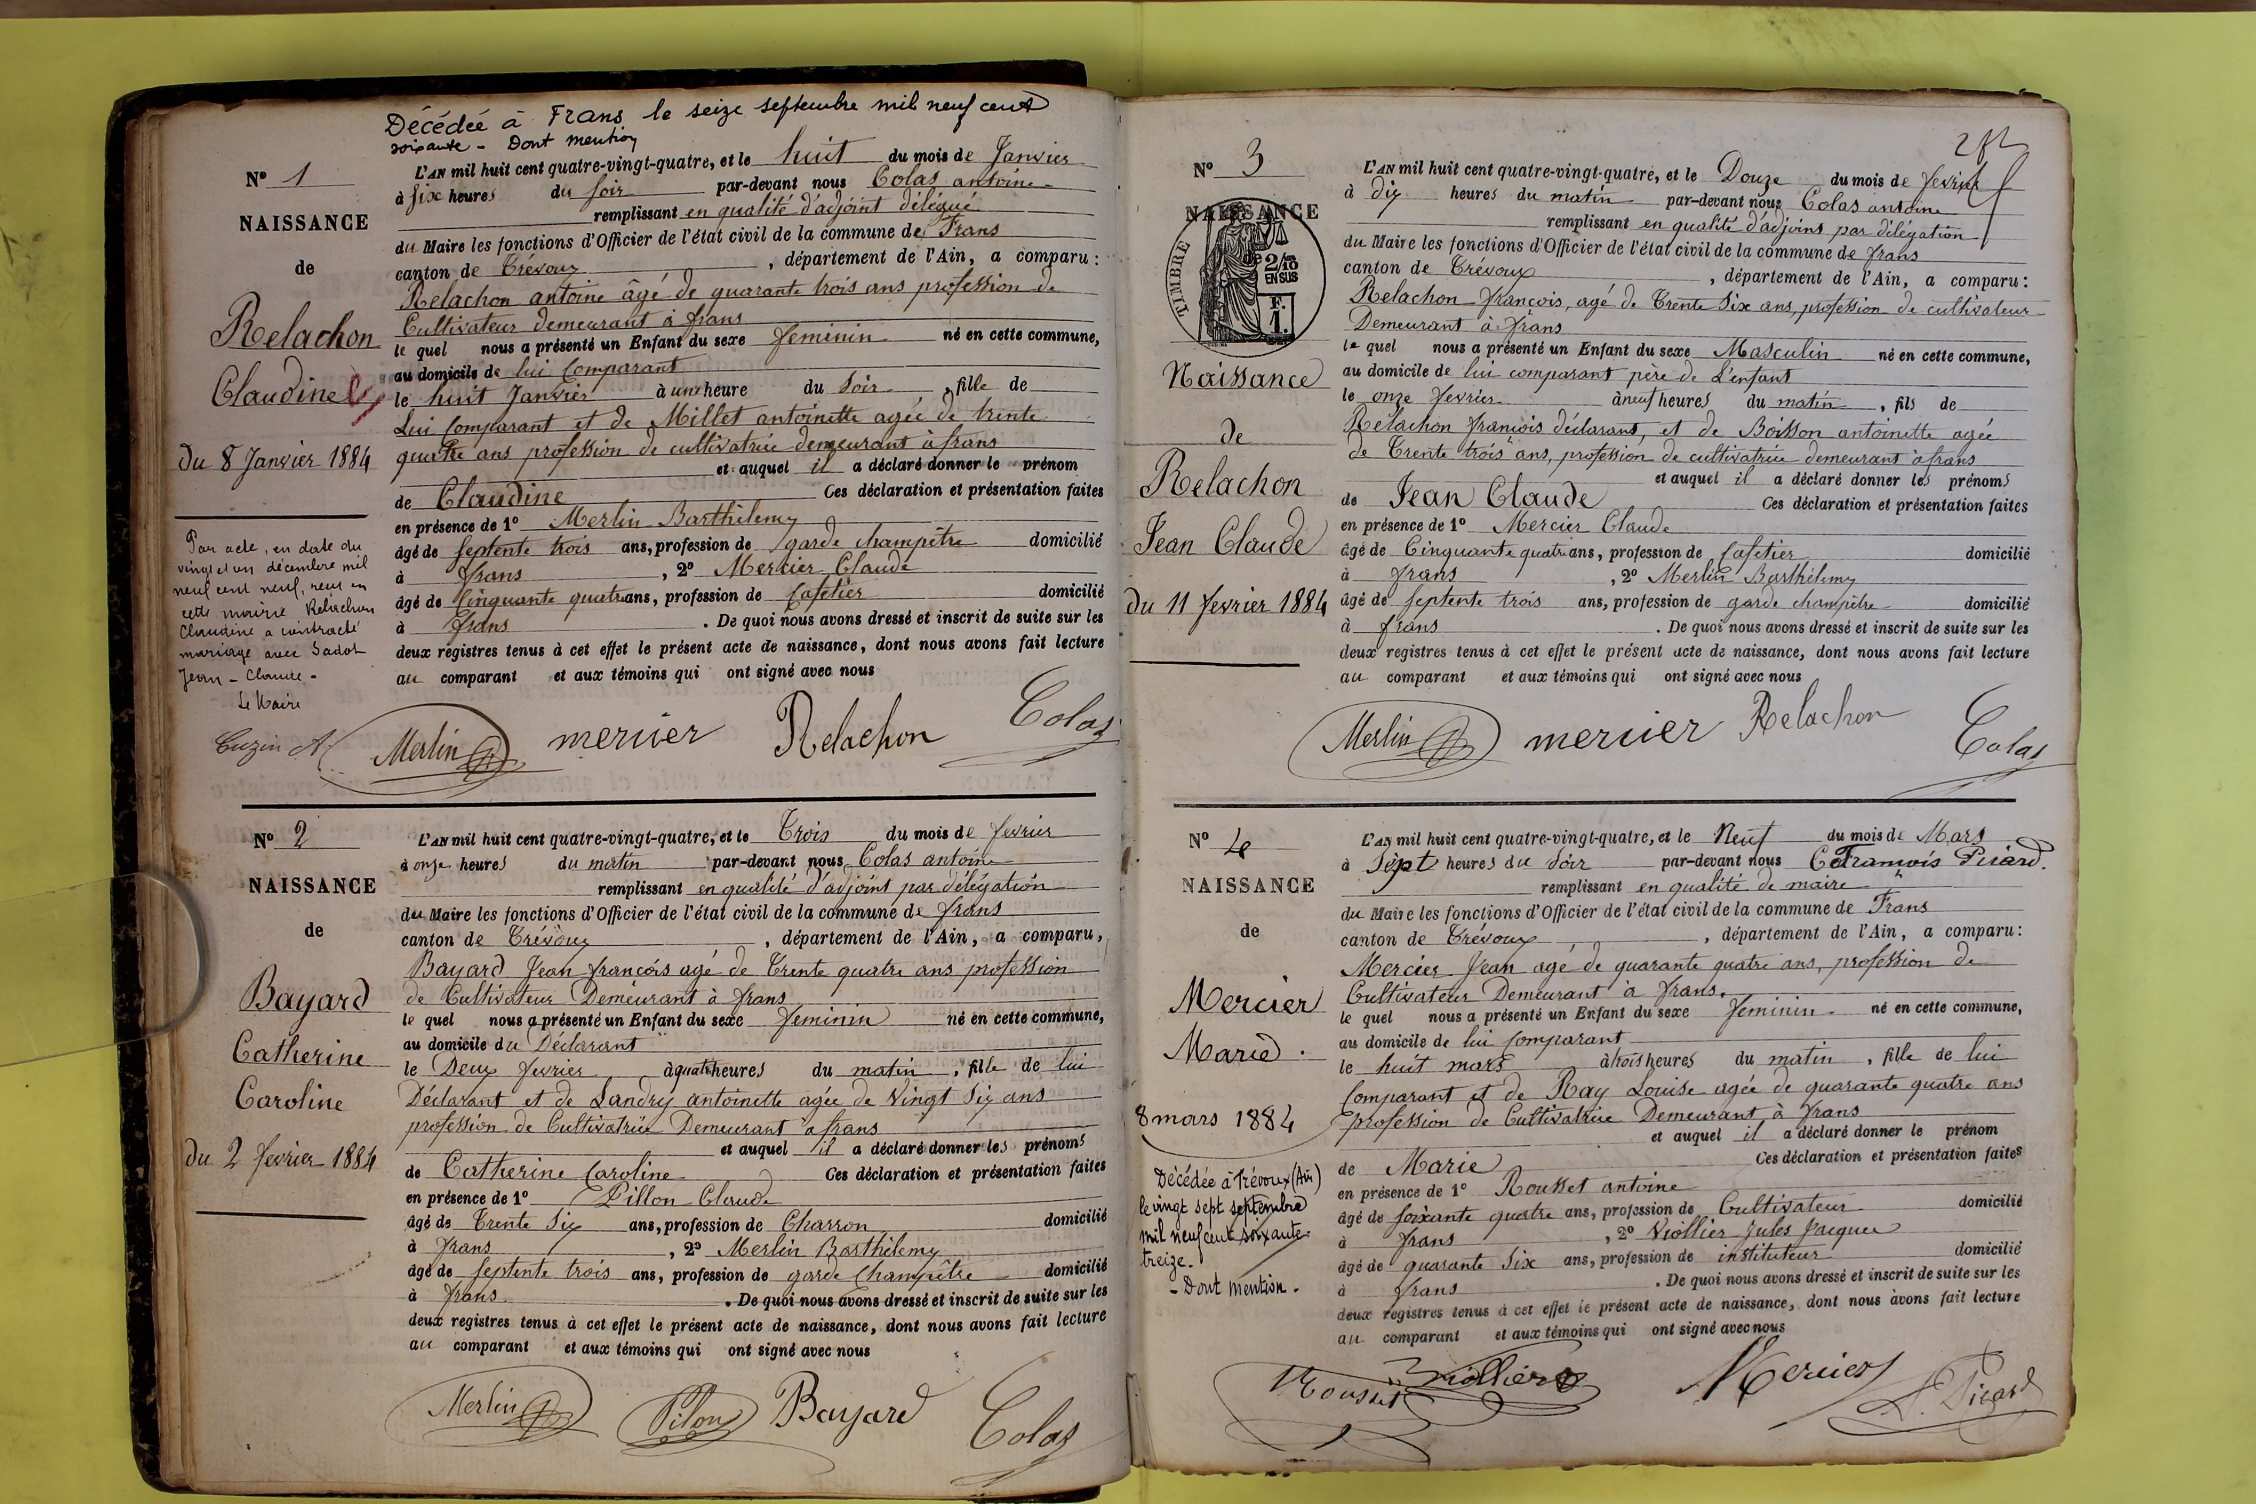 Décédée à Frans le seize septembre mil neuf cent
soixante - Dont mention
N° 1
NAISSANCE
de
Relachon
Claudine
du 8 Janvier 1884
Par acte, en date du
vingt et un décembre mil
neuf cent neuf, reçu en
cette mairie Relachon
Claudine a contracté
mariage avec Sadot
Jean-Claude -
Le Maire
Cuzin A
L'AN mil huit cent quatre-vingt-quatre, et le huit du mois de Janvier
à six heures du soir par-devant nous Colas antoine
remplissant en qualité d'adjoint délégué
du Maire les fonctions d'Officier de l'état civil de la commune de Frans
canton de Trévoux, département de l'Ain, a comparu :
Relachon antoine âgé de quarante trois ans profession de
Cultivateur demeurant à frans
le quel nous a présenté un Enfant du sexe feminin né en cette commune,
au domicile de lui Comparant
le huit Janvier à une heure du Soir, fille de
Lui Comparant et de Millet antoinette agée de trente
quatre ans profession de cultivatrice demeurant à frans
et auquel il a déclaré donner le prénom
de Claudine Ces déclaration et présentation faites
en présence de 1° Merlin Barthélemy
âgé de septente trois ans, profession de garde champêtre domicilié
à frans, 2° Mercier Claude
âgé de Cinquante quatre ans, profession de Cafetier domicilié
à frans. De quoi nous avons dressé et inscrit de suite sur les
deux registres tenus à cet effet le présent acte de naissance, dont nous avons fait lecture
au comparant et aux témoins qui ont signé avec nous
Merlin mercier Relachon Colas
N° 2
NAISSANCE
de
Bayard
Catherine
Caroline
du 2 fevrier 1884
L'AN mil huit cent quatre-vingt-quatre, et le Trois du mois de fevrier
à onze heures du matin par-devant nous Colas antoine
remplissant en qualité d'adjoint par délégation
du Maire les fonctions d'Officier de l'état civil de la commune de frans
canton de Trévoux, département de l'Ain, a comparu,
Bayard Jean françois agé de Trente quatre ans profession
de Cultivateur Demeurant à frans
le quel nous a présenté un Enfant du sexe feminin né en cette commune,
au domicile du Déclarant
le Deux fevrier à quatre heures du matin, fille de lui
Déclarant et de Landry antoinette agée de Vingt Six ans
profession de Cultivatrice Demeurant à frans
et auquel il a déclaré donner les prénoms
de Catherine Caroline Ces déclaration et présentation faites
en présence de 1° Pillon Claude
âgé de Trente Six ans, profession de Charron domicilié
à frans, 2° Merlin Barthélemy
âgé de septente trois ans, profession de garde Champêtre domicilié
à frans. De quoi nous avons dressé et inscrit de suite sur les
deux registres tenus à cet effet le présent acte de naissance, dont nous avons fait lecture
au comparant et aux témoins qui ont signé avec nous
Merlin Pilon Bayard Colas
N° 3
NAISSANCE
TIMBRE
de
2/10
EN SUS
F.
1.
Naissance
de
Relachon
Jean Claude
du 11 fevrier 1884
L'AN mil huit cent quatre-vingt-quatre, et le Douze du mois de fevrier
à dix heures du matin par-devant nous Colas antoine
remplissant en qualité d'adjoint par délégation
du Maire les fonctions d'Officier de l'état civil de la commune de frans
canton de Trévoux, département de l'Ain, a comparu :
Relachon françois, agé de Trente Six ans, profession de cultivateur
Demeurant à frans
le quel nous a présenté un Enfant du sexe Masculin né en cette commune,
au domicile de lui comparant père de L'enfant
le onze fevrier à neuf heures du matin, fils de
Relachon françois déclarant, et de Boisson antoinette agée
de Trente trois ans, profession de cultivatrice demeurant à frans
et auquel il a déclaré donner les prénoms
de Jean Claude Ces déclaration et présentation faites
en présence de 1° Mercier Claude
âgé de Cinquante quatre ans, profession de Cafetier domicilié
à frans, 2° Merlin Barthélemy
âgé de septente trois ans, profession de garde champêtre domicilié
à frans. De quoi nous avons dressé et inscrit de suite sur les
deux registres tenus à cet effet le présent acte de naissance, dont nous avons fait lecture
au comparant et aux témoins qui ont signé avec nous
Merlin mercier Relachon Colas
N° 4
NAISSANCE
de
Mercier
Marie.
8 mars 1884
Décédée à Trévoux (Ain)
le vingt sept septembre
mil neuf cent soixante-
treize.
- Dont mention.
L'AN mil huit cent quatre-vingt-quatre, et le Neuf du mois de Mars
à Sept heures du Soir par-devant nous François Picard.
remplissant en qualité de maire
du Maire les fonctions d'Officier de l'état civil de la commune de Frans
canton de Trévoux, département de l'Ain, a comparu :
Mercier Jean agé de quarante quatre ans, profession de
Cultivateur Demeurant à frans.
le quel nous a présenté un Enfant du sexe feminin né en cette commune,
au domicile de lui Comparant
le huit mars à trois heures du matin, fille de lui
Comparant et de Ray Louise agée de quarante quatre ans
profession de Cultivatrice Demeurant à frans
et auquel il a déclaré donner le prénom
de Marie Ces déclaration et présentation faites
en présence de 1° Rousset antoine
âgé de soixante quatre ans, profession de Cultivateur domicilié
à frans, 2° Viollier Jules Jacques
âgé de quarante Six ans, profession de instituteur domicilié
à frans. De quoi nous avons dressé et inscrit de suite sur les
deux registres tenus à cet effet le présent acte de naissance, dont nous avons fait lecture
au comparant et aux témoins qui ont signé avec nous
Rousset Viollier Mercier Picard